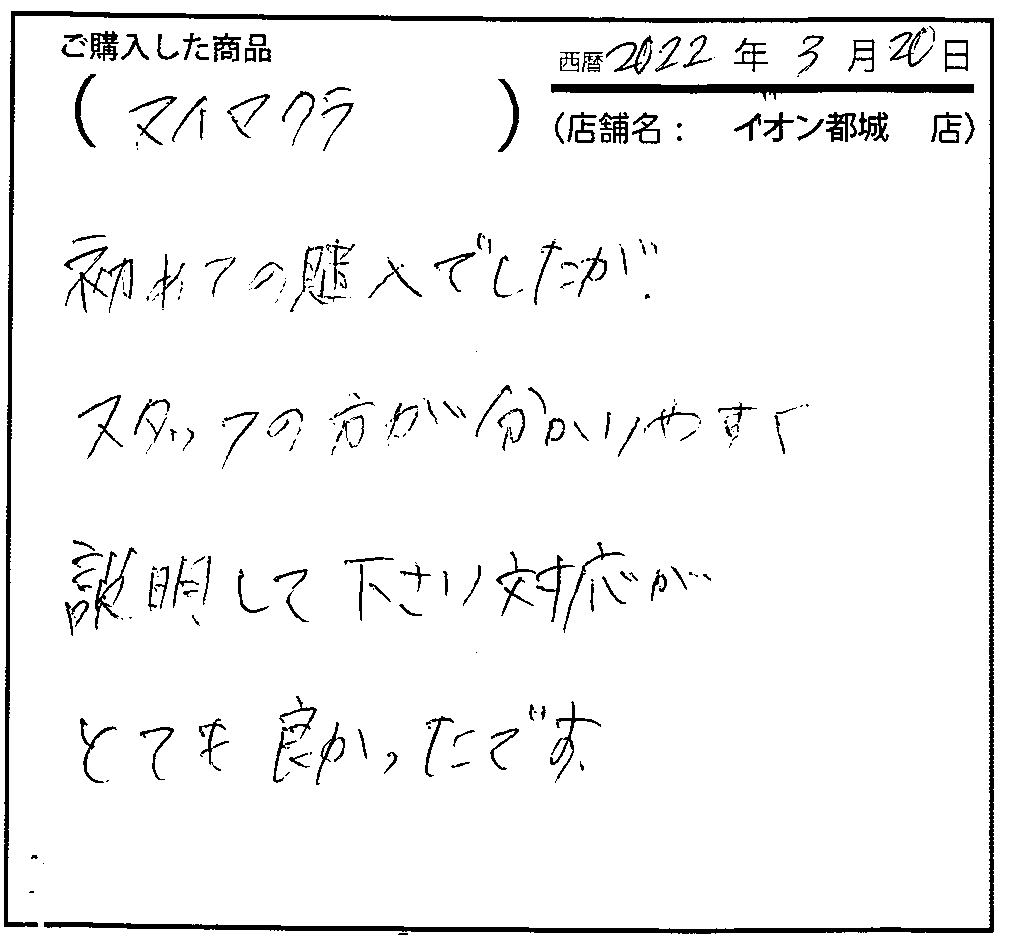 ご購入した商品
西暦2022年3月20日
(マイマクラ)
(店舗名: イオン都城 店)
初めての購入でしたが、
スタッフの方が分かりやすく
説明して下さり対応が
とても良かったです。